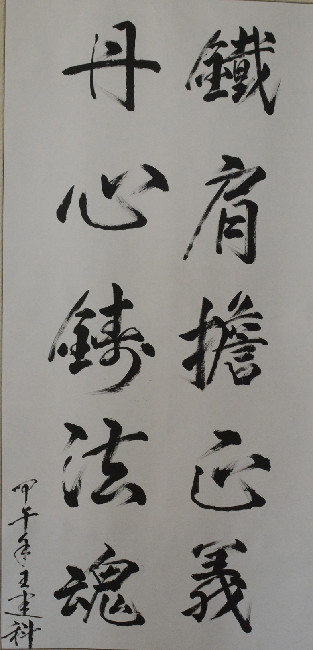 鐵肩擔正義
丹心鑄法魂
甲午年王建科